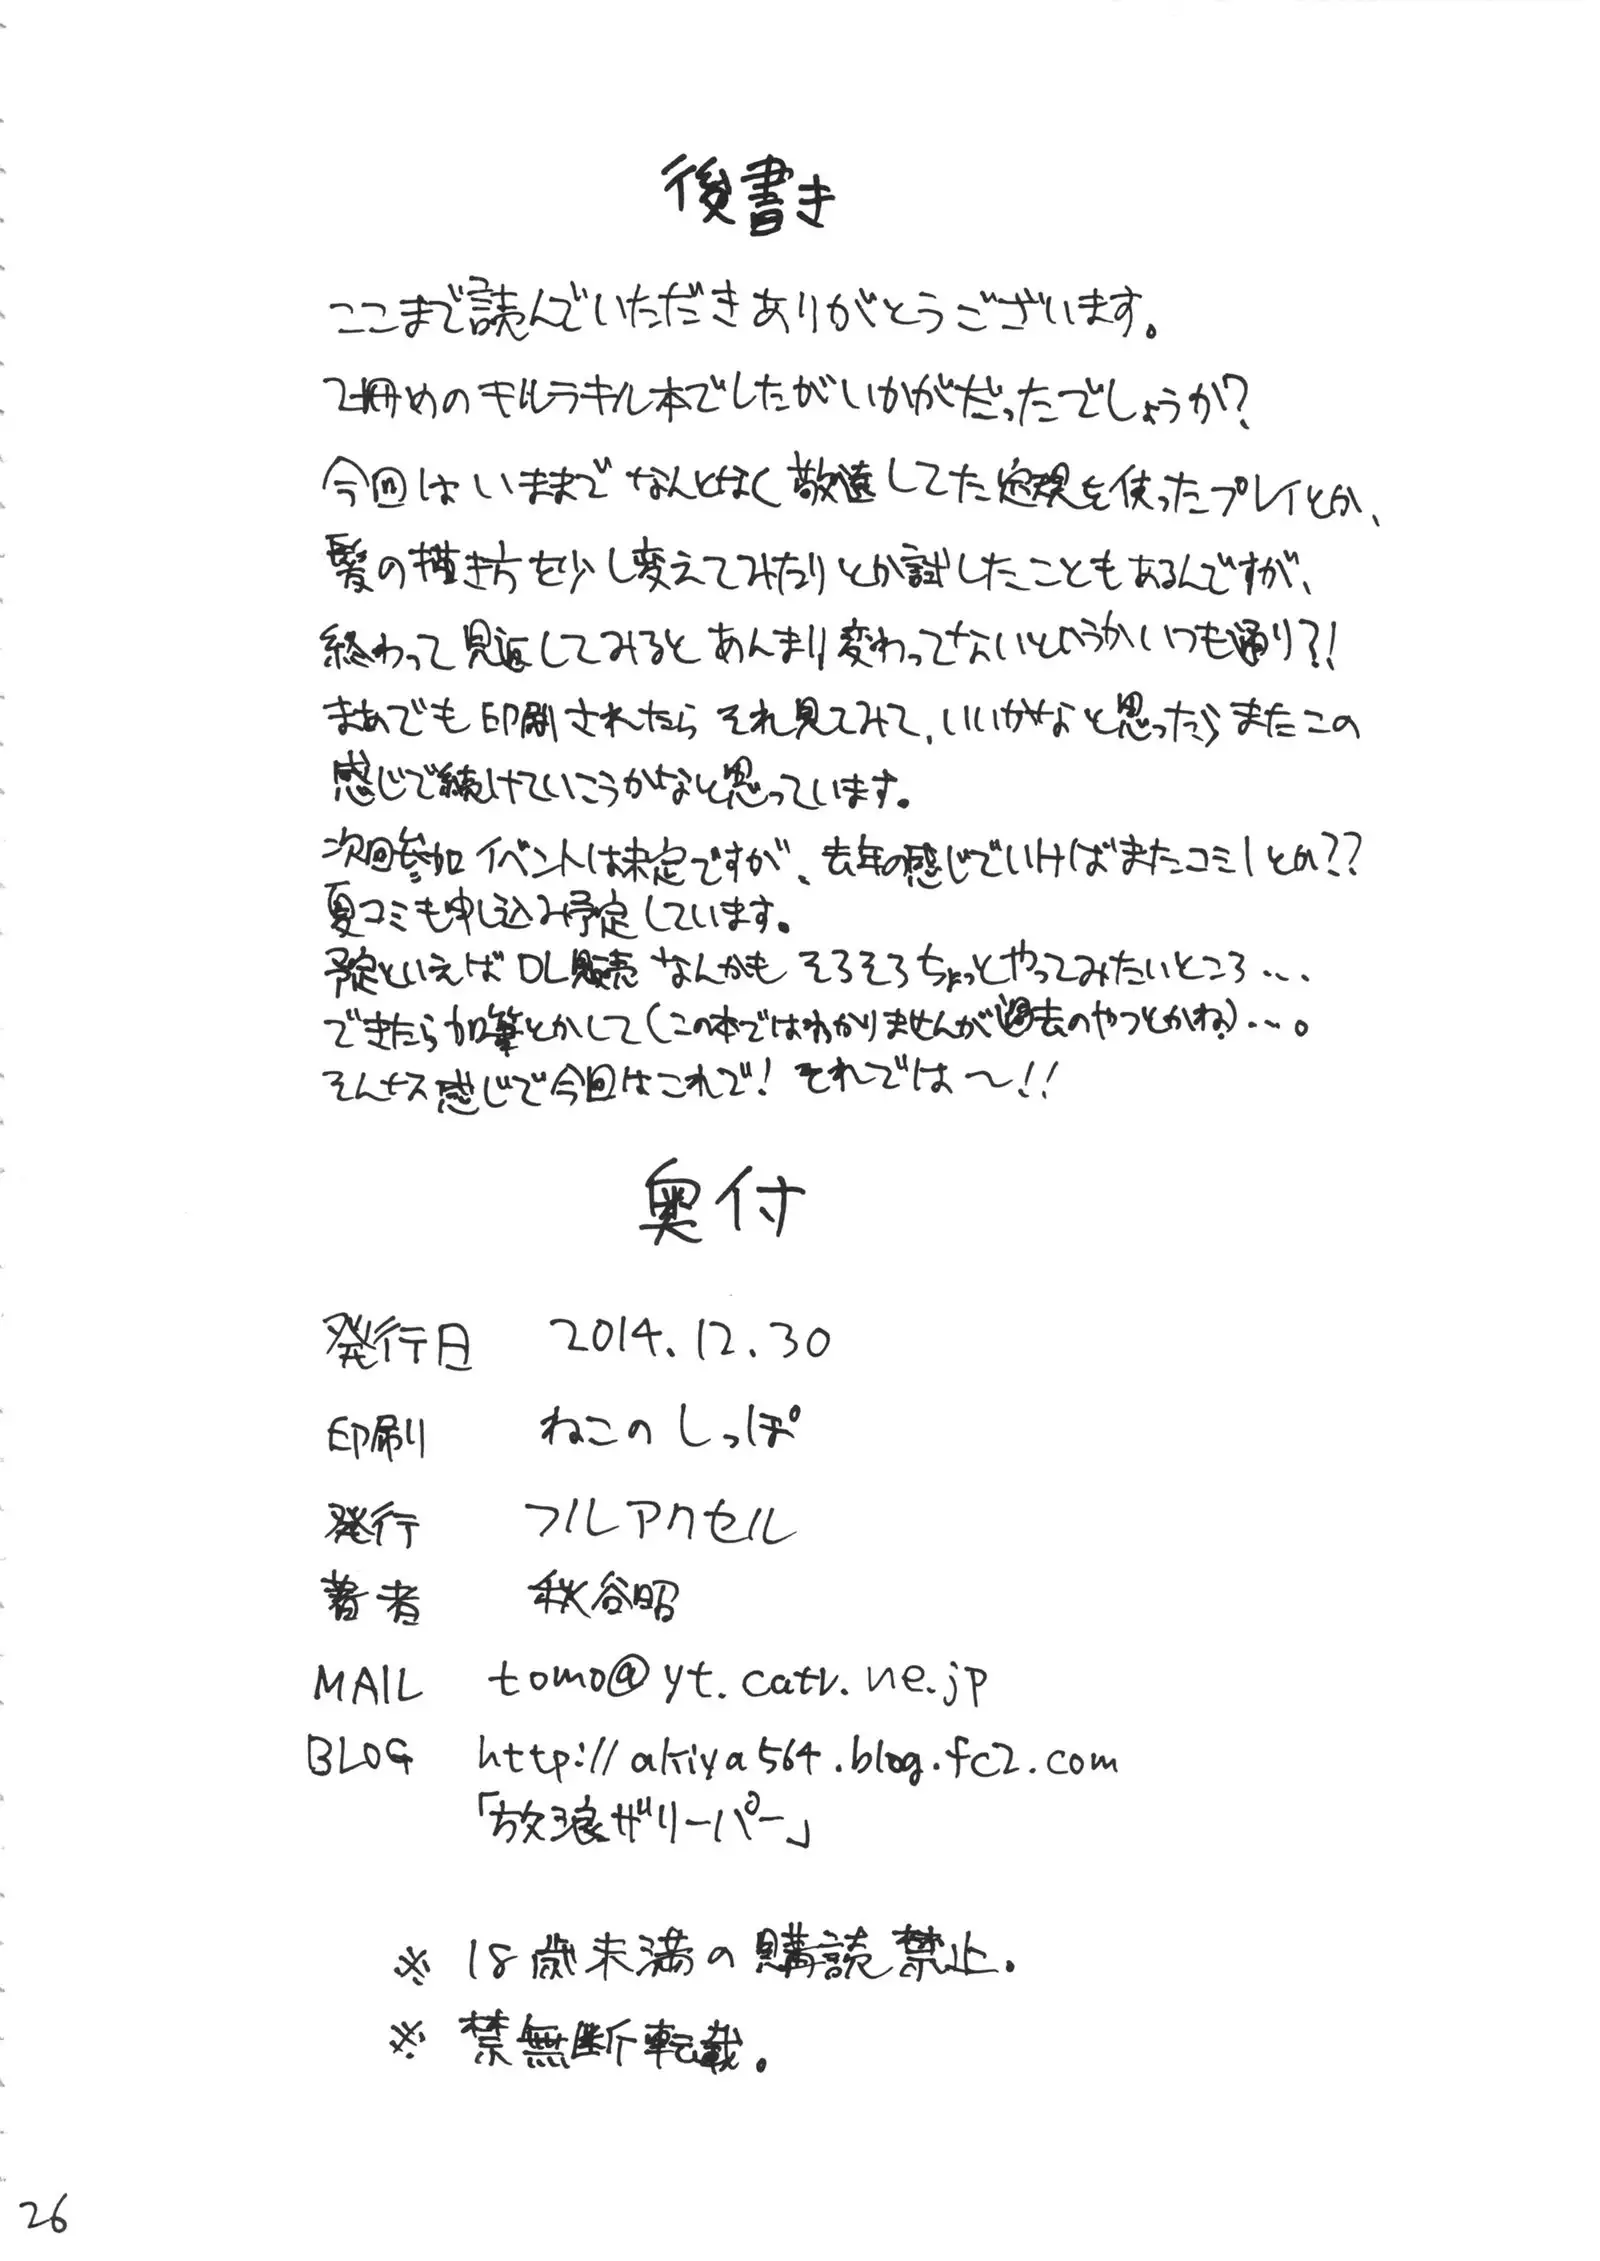 後書き
ここまで読んでいただきありがとうございます。
2冊めのキルラキル本でしたがいかがだったでしょうか?
今回はいままでなんとなく敬遠してた定規を使ったプレイとか、
髪の描き方を少し変えてみたりとか試したこともあるんですが、
終わって見返してみるとあんまり変わってないというかいつも通り?!
まあでも印刷されたらそれ見てみて、いいかなと思ったらまたこの
感じで続けていこうかなと思っています。
次回参加イベントは未定ですが、去年の感じでいけばまたコミ1とか??
夏コミも申し込み予定しています。
予定といえばDL販売なんかもそろそろちょっとやってみたいところ...
できたら加筆とかして(この本ではわかりませんが過去のやつとかね)...。
そんな感じで今回はこれで!それでは〜!!
奥付
発行日 2014.12.30
印刷 ねこのしっぽ
発行 フルアクセル
著者 秋谷昭
MAIL tomo@yt.catv.ne.jp
BLOG http://akiya564.blog.fc2.com
「放浪ザリーパー」
※ 18歳未満の購読禁止。
※ 禁無断転載。
26